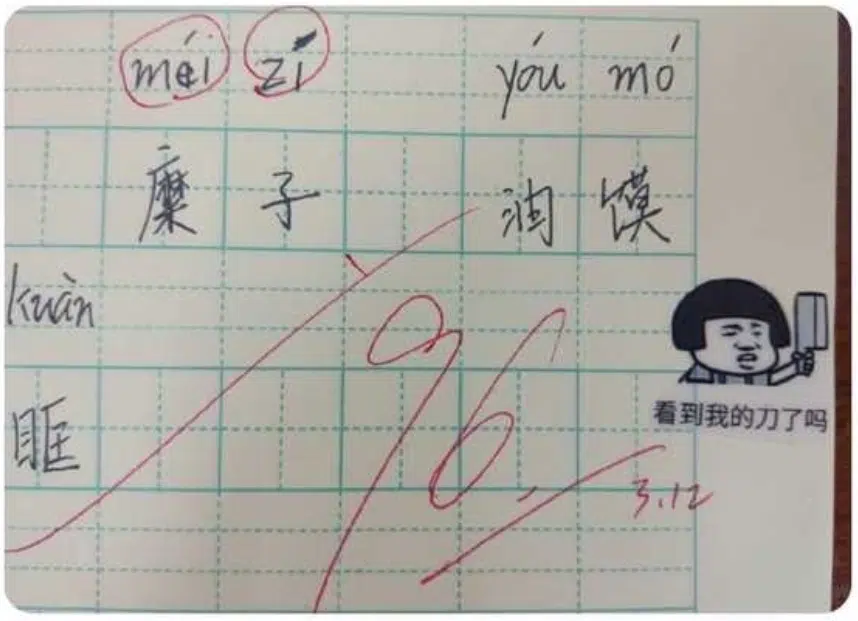 méi zí yóu mó
糜 子 油 馍
kuàn
眶
96.
3.12
看到我的刀了吗